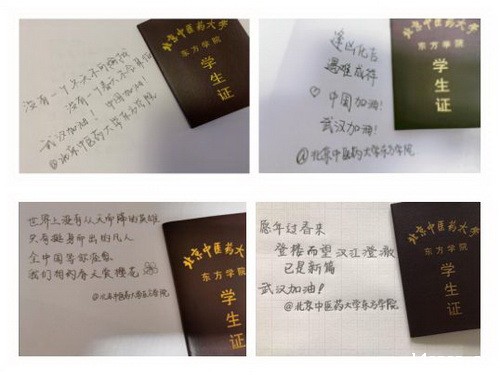 没有一个冬天不可逾越
没有一个春天不会来临
武汉加油！中国加油！
@北京中医药大学东方学院
北京中医药大学
东方学院
学生证
逢凶化吉
遇难成祥
♡中国加油！
武汉加油！
@北京中医药大学东方学院
北京中医药大学
东方学院
学生证
世界上没有从天而降的英雄
只有挺身而出的凡人
全中国等你痊愈
我们相约春天赏樱花
@北京中医药大学东方学院
北京中医药大学
东方学院
学生证
愿年过春来
登楼而望 汉江澄澈
已是新篇
武汉加油！
@北京中医药大学东方学院
北京中医药大学
东方学院
学生证